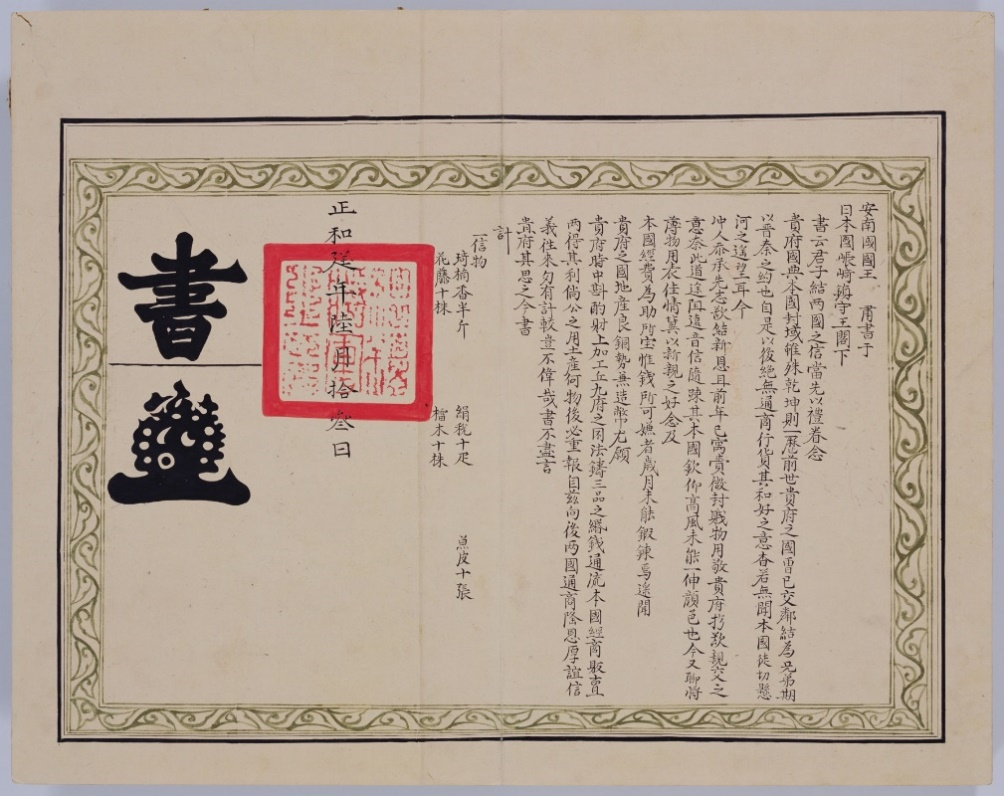 安南國國王　肅書于
日本國帳﨑鎮守王閣下
書云君子結兩國之信當先以禮眷念
貴府國與本國封域雖殊乾坤則一慝前世貴府之國曾已交鄰結為兄弟期
以晋秦之約也自是以後絕無通商行貨其和好之意杳若無聞本國徒切懸
河之遙望耳今
坤人忝承先志欲結新恩且前年已寓賣微封賤物用敬貴府将欲親交之
意奈此道途阻遠音信隨踈其本國欽仰高風未能一伸顏色也今又聊将
薄物用表佳情冀以新親之好念及
本國經費為助所宝惟錢所可嫌者歲月未能鍛鍊焉遥聞
貴府之國地產良銅勢無造幣尤領
貴府時中斟酌財上加工立九府之圜法鑄三品之緡錢通流本國經商販賣
兩得其利倘公之用土產何物後必重報自玆向後兩國通商陰恩厚誼信
義往來勿有計較豈不偉哉書不盡言
貴府其思之今書
計
一信物
琦楠香半斤　絹我十疋　魚皮十張
花藤十株　檑木十株
正和　年陸月拾叄日
書